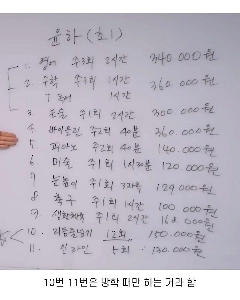 윤하 (초1)
1. 영어 주3회 2시간 340.000원
2. 수학 주1회 1시간 360.000원
1시간
3. 논술 주1회 2시간 300.000원
4 바이올린 주2회 40분 360.000원
5 피아노 주2회 40분 140.000원
6 미술 주1회 1시30분 120.000원
7 눈높이 주1회 3과목 129.000원
8 축구 주1회 1시간 100.000원
9 생활체육 주1회 2시간 160.000원
10. 리듬줄넘기 12회 150.000원
11. 인라인 5회 130.000원
10번 11번은 방학 때만 하는 거라 함